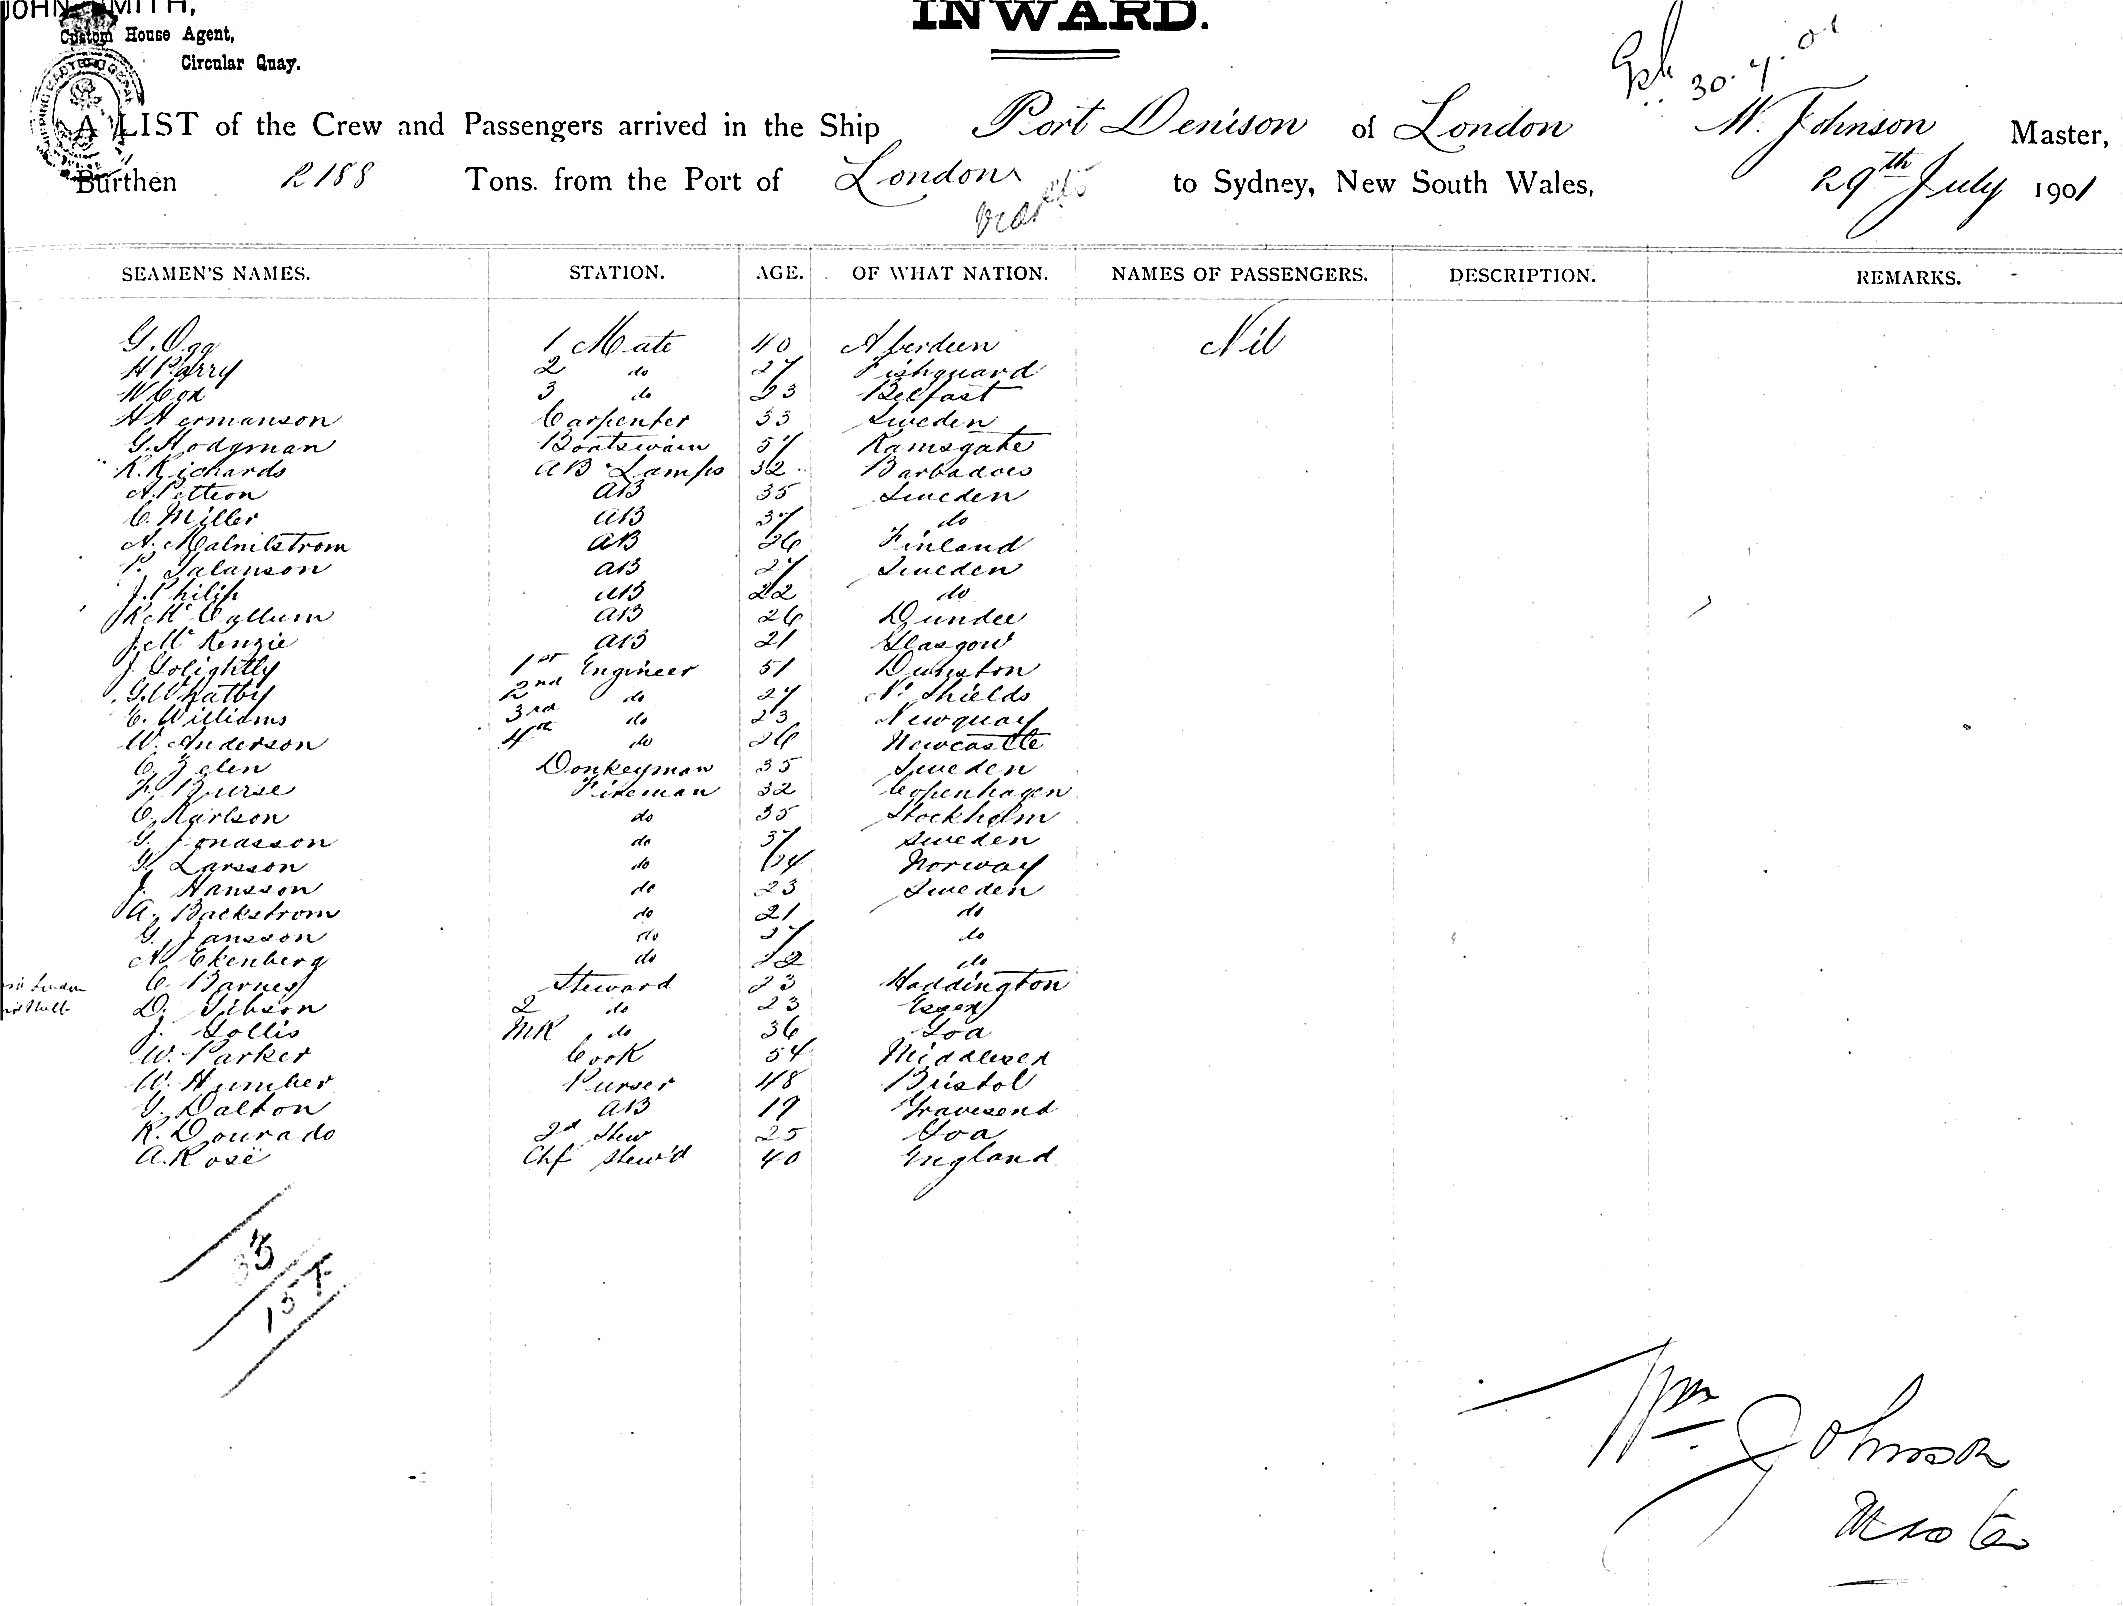 JOHN SMITH,
INWARD.
Custom House Agent,
Circular Quay.
30.7.01
A LIST of the Crew and Passengers arrived in the Ship Port Denison of London W. Johnson Master,
Burthen 2188 Tons. from the Port of London to Sydney, New South Wales, 29th July 1901
SEAMEN'S NAMES. STATION. AGE. OF WHAT NATION. NAMES OF PASSENGERS. DESCRIPTION. REMARKS.
G. Ogg 1 Mate 40 Aberdeen Nil
H Parry 2 do 27 Fishguard
W Cox 3 do 23 Belfast
H Hermanson Carpenter 33 Sweden
G. Hodgman Boatswain 57 Ramsgate
R. Richards AB Lamps 32 Barbadoes
A. AB 35 Sweden
C. Miller AB 37 do
A. AB 26 Finland
P. AB 27 Sweden
J. Philip AB 22 do
R. Mc Callum AB 26 Dundee
J. Mc Kenzie AB 21 Glasgow
J Golightly 1st Engineer 51 Dunston
G. Whatby 2nd do 27 No Shields
E. Williams 3rd do 23 Newquay
W. Anderson 4th do 26 Newcastle
C. Zelen Donkeyman 35 Sweden
Burse Fireman 32 Copenhagen
C. Karlson do 35 Stockholm
G. Jonasson do 37 Sweden
G. Larsson do 24 Norway
J. Hansson do 23 Sweden
A. Backstrom do 21 do
G. Jansson do 27 do
A. Ekenberg do 22 do
C. Barnes Steward 23 Haddington
D. Gibson 2 do 23 Essex
J. Gollis MR do 36 Goa
W. Parker Cook 54 Middlesex
W. Humber Purser 48 Bristol
G. Dalton AB 19 Gravesend
R. Dourado 2d Stew 25 Goa
A. Rose Chf Stew'd 40 England
35
Wm Johnson
Master